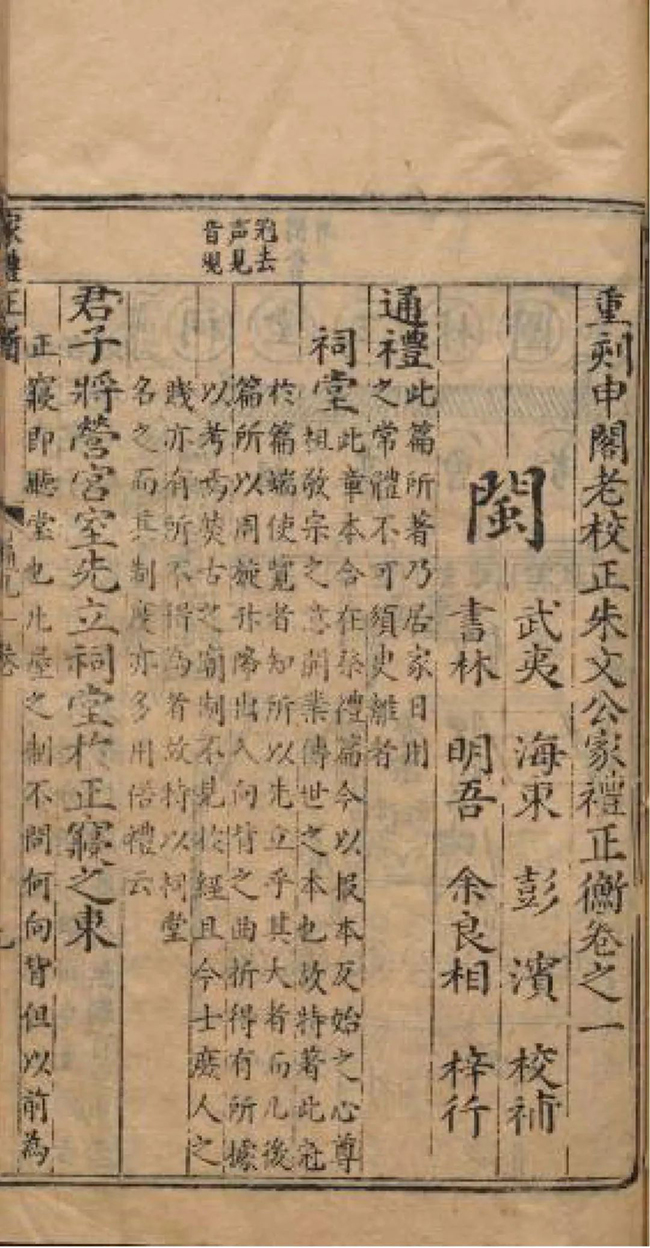 重刻申閣老校正朱文公家禮正衡卷之一
閩
武夷 海東 彭濱 校補
書林 明吾 余良相 梓行
通禮此篇所著乃居家日用
之常體不可須臾離者
祠堂此章本合在祭禮篇今以报本反始之心尊
祖敬宗之意開業傳世之本也故特著此冠
於篇端使覽者知所以先立乎其大者而凡後
篇所以周旋升降出入向背之曲折得有所據
以考焉然古之廟制不見於經且今士庶人之
賤亦有所不得為者故特以祠堂
名之而其制度亦多用俗禮云
冠去
声見
音覌
君子將營宮室先立祠堂於正寢之東
正寢即廳堂也凡屋之制不問何向背但以前為
家禮正衡 一卷